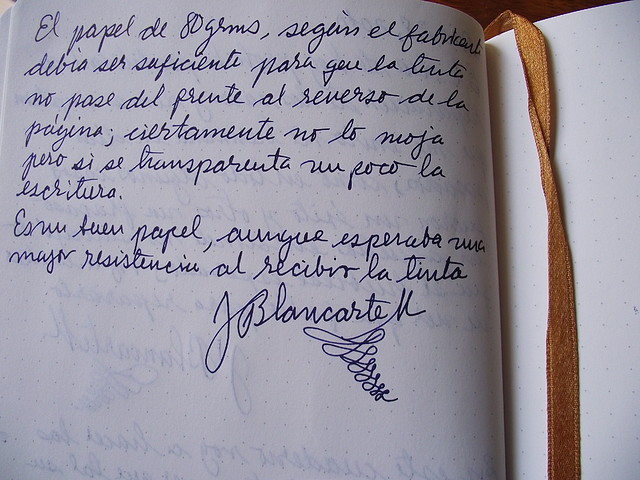 El papel de 80grms, según el fabricant
debia ser suficiente para que la tinta
no pase del frente al reverso de la
página; ciertamente no lo moja
pero si se transparenta un poco la
escritura.
Es un buen papel, aunque esperaba una
mayor resistencia al recibir la tinta
J Blancarte M